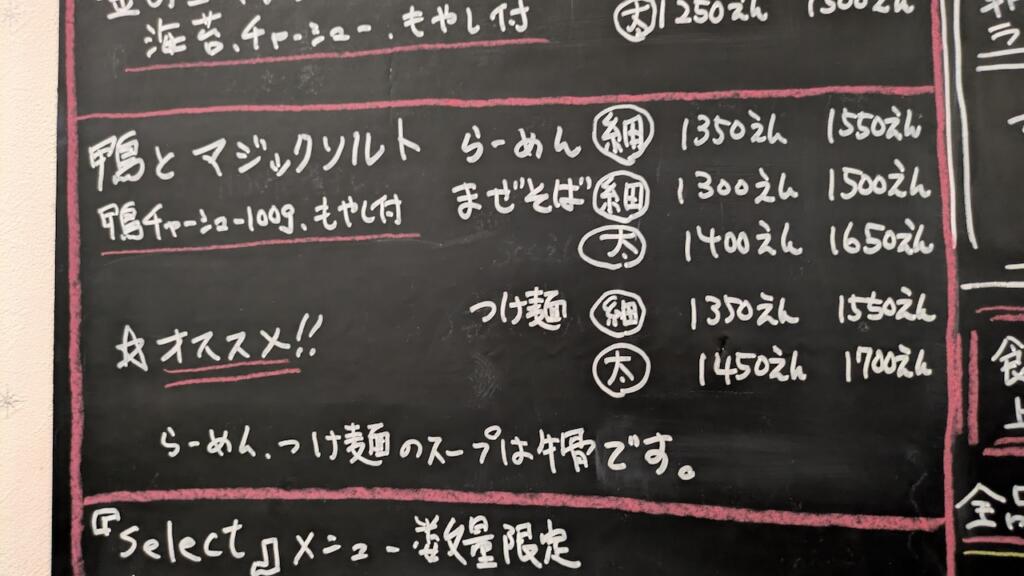 海苔、チャーシュー、もやし付 太 1250えん 1500えん
鴨とマジックソルト らーめん 細 1350えん 1550えん
鴨チャーシュー100g、もやし付 まぜそば 細 1300えん 1500えん
太 1400えん 1650えん
つけ麺 細 1350えん 1550えん
☆オススメ!!
太 1450えん 1700えん
らーめん、つけ麺のスープは牛骨です。
『Select』メニュー 数量限定
ラ
食
上
全品